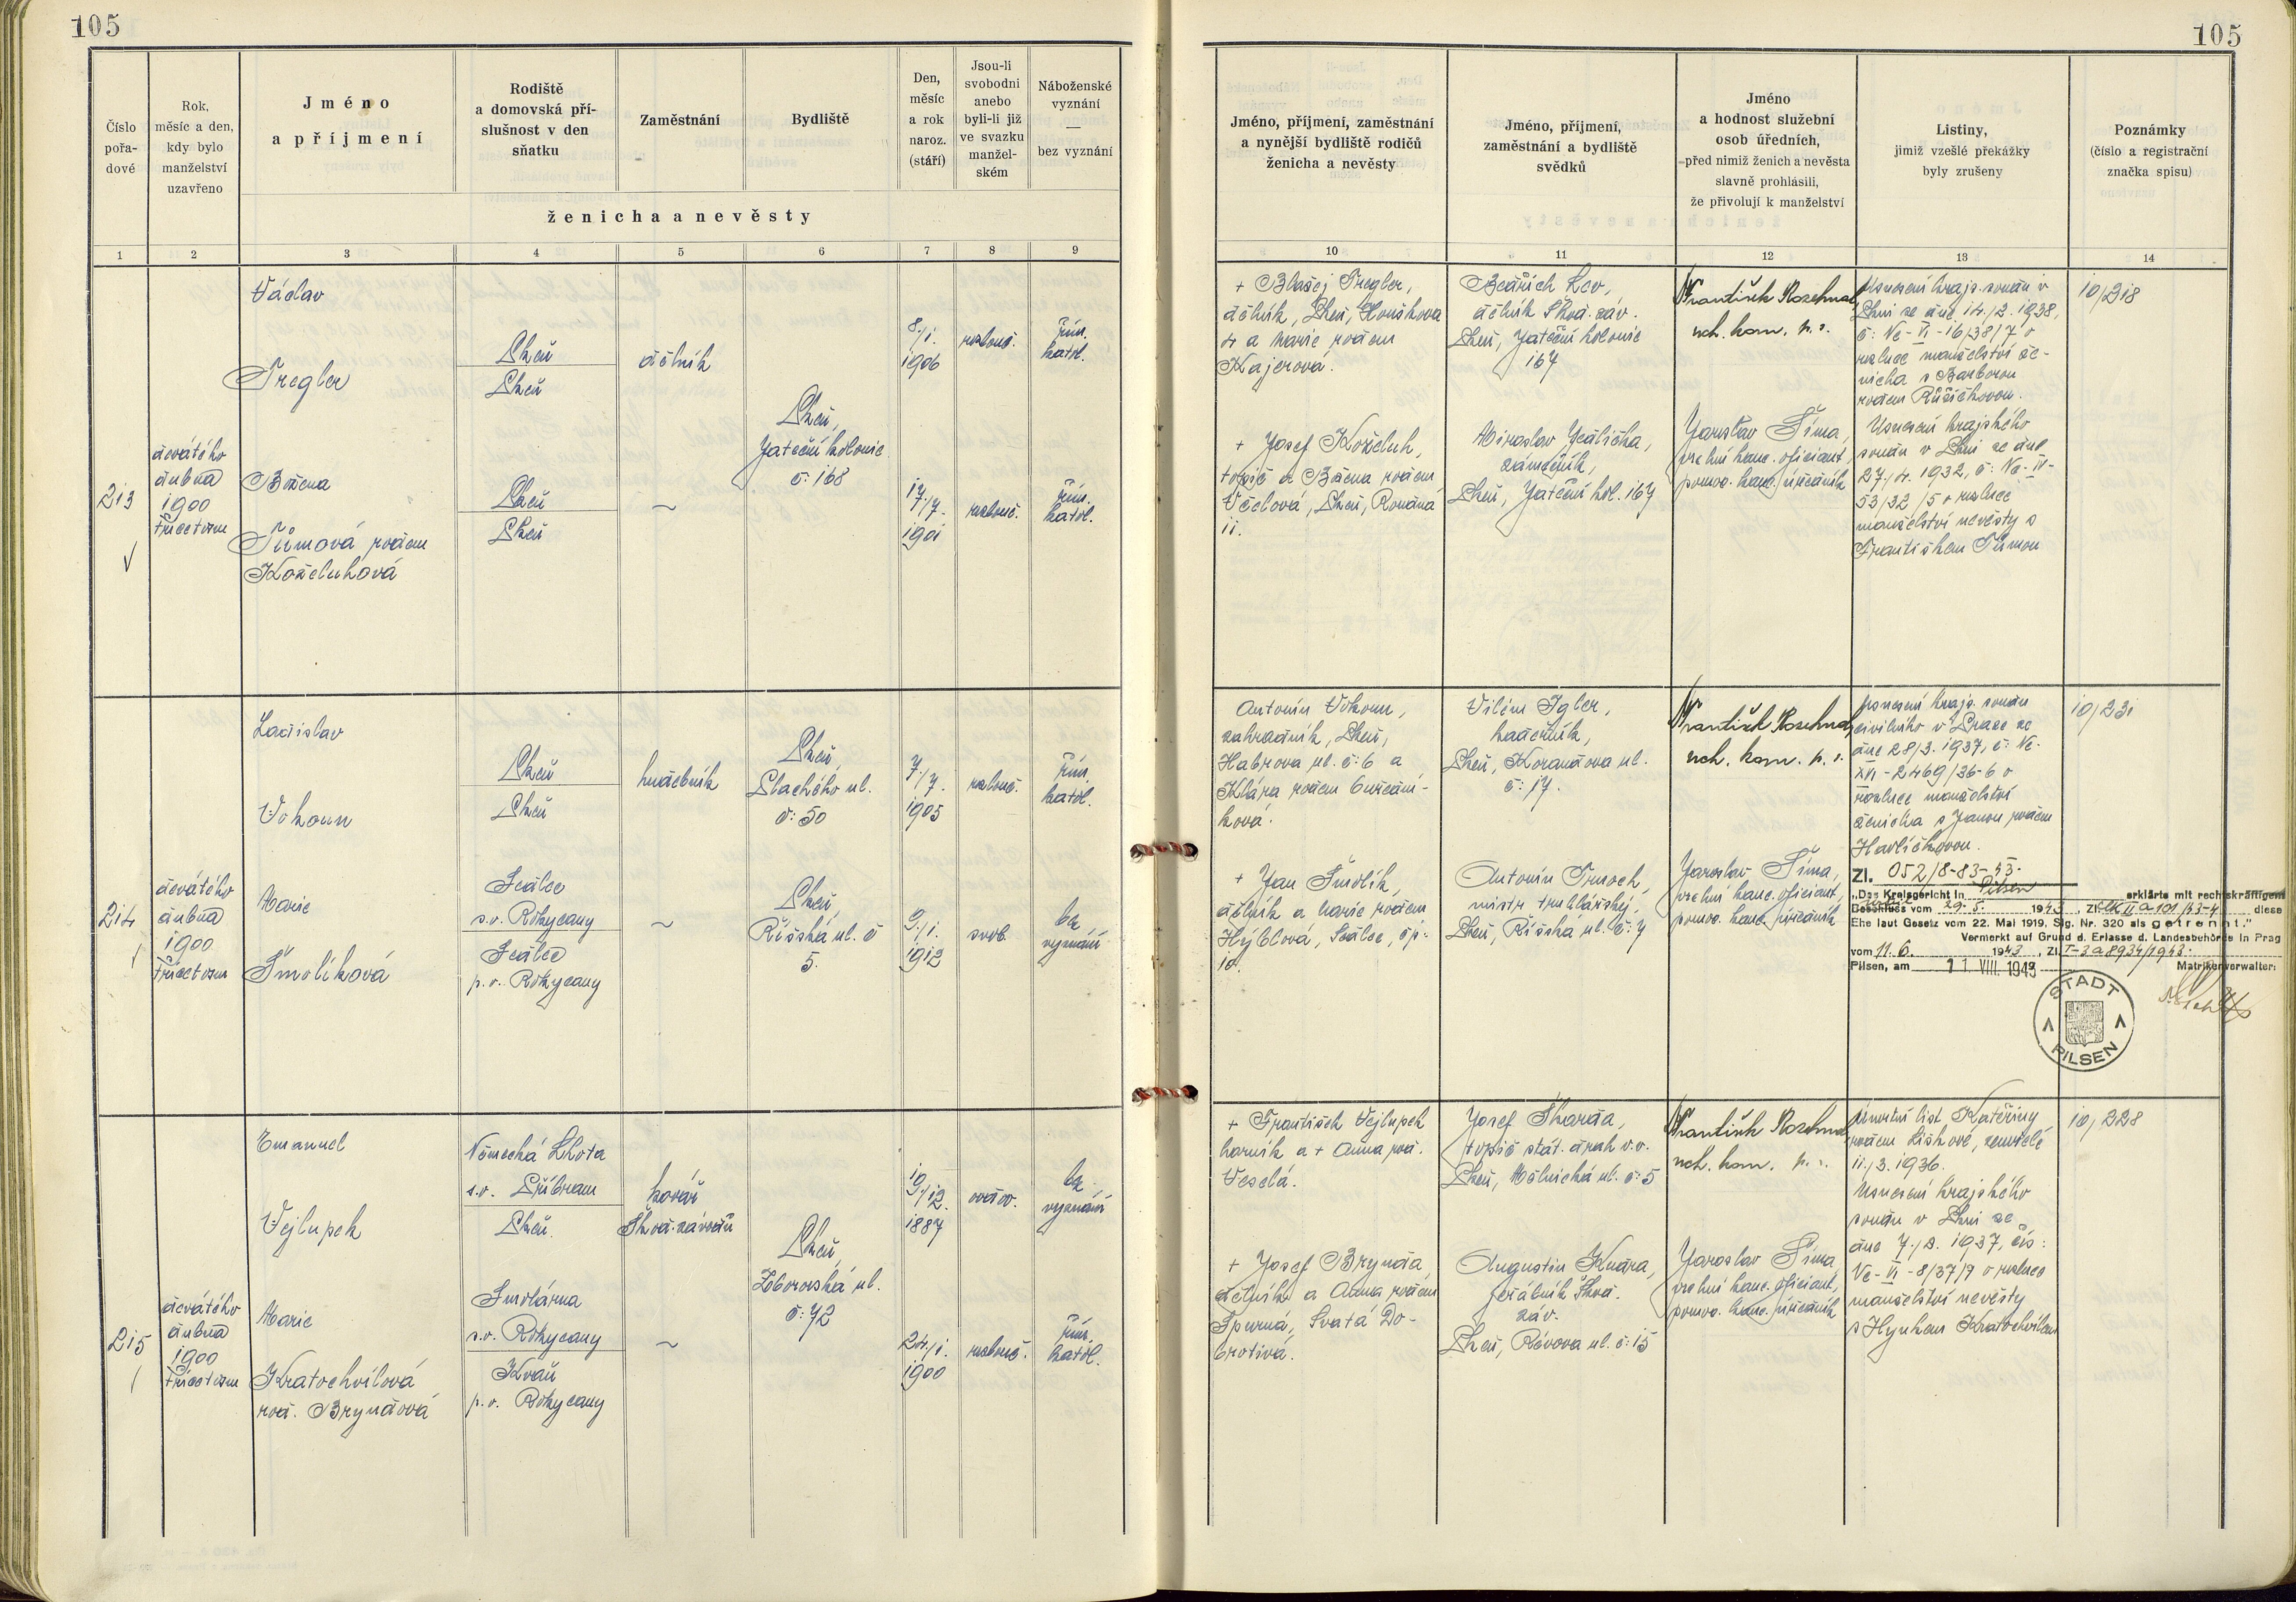 105
105
Číslo
pořa-
dové
Rok,
měsíc a den,
kdy bylo
manželství
uzavřeno
Jméno
a příjmení
Rodiště
a domovská pří-
slušnost v den
sňatku
Zaměstnání
Bydliště
Den,
měsíc
a rok
naroz.
(stáří)
Jsou-li
svobodni
anebo
byli-li již
ve svazku
manžel-
ském
Náboženské
vyznání
—
bez vyznání
ženicha a nevěsty
Jméno, příjmení, zaměstnání
a nynější bydliště rodičů
ženicha a nevěsty
Jméno, příjmení,
zaměstnání a bydliště
svědků
Jméno
a hodnost služební
osob úředních,
před nimiž ženich a nevěsta
slavně prohlásili,
že přivolují k manželství
Listiny,
jimiž vzešlé překážky
byly zrušeny
Poznámky
(číslo a registrační
značka spisu)
1 2 3 4 5 6 7 8 9 10 11 12 13 14
213
devátého
dubna
1900
třicetosm
Václav
Tregler
Plzeň
Plzeň
dělník
Plzeň,
Jateční kolonie
č: 168
8./1.
1906
rozlouč.
řím.
katol.
Božena
Tůmová rodem
Koželuhová
Plzeň
Plzeň
~
17./7.
1901
rozlouč.
řím.
katol.
+ Blažej Tregler,
dělník, Plzeň, Houškova
4 a Marie rodem
Kajerová.
+ Josef Koželuh,
topič a Božena rodem
Včelová, Plzeň, Rovná
11.
Bedřich Lev,
dělník Škod. záv.
Plzeň, Jateční kolonie
167
Miroslav Jedlička,
zámečník,
Plzeň, Jateční kol. 167
František Rozehnal
rch. kom. p. s.
Jaroslav Šíma,
vrchní kanc. oficiant,
pomoc. kanc. úředník
Usnesení krajs. soudu v
Plzni ze dne 14./2. 1938,
č: Nc-VI-16/38/7 o
rozluce manželství že-
nicha s Barborou
rodem Růžičkovou.
Usnesení krajského
soudu v Plzni ze dne
27./4. 1932, č: Nc-VI-
53/32/5 o rozluce
manželství nevěsty s
Františkem Tůmou
10/218
214
devátého
dubna
1900
třicetosm
Ladislav
Vokoun
Plzeň
Plzeň
hudebník
Plzeň,
Plachého ul.
č: 50
7./7.
1905
rozlouč.
řím.
katol.
Marie
Šmolíková
Sedlec
s.o. Rokycany
Sedlec
p.o. Rokycany
~
Plzeň,
Říšská ul. č
5.
9./1.
1912
svob.
bez
vyznání
Antonín Vokoun,
zahradník, Plzeň,
Habrova ul. č: 6 a
Klára rodem
+ Jan Šmolík,
dělník a Marie rodem
Hýblová, Sedlec, čp:
10.
Vilém Igler,
haderník,
Plzeň, Korandova ul.
č: 17.
Antonín Trnoch,
mistr truhlářský,
Plzeň, Říšská ul. č: 7
František Rozehnal
rch. kom. p. s.
Jaroslav Šíma,
vrchní kanc. oficiant,
pomoc. kanc. úředník
Usnesení krajs. soudu
civilního v Praze ze
dne 28/3. 1937, č: Nc-
XVI-2469/36-6 o
rozluce manželství
ženicha s Janou rodem
Havlíčkovou.
Zl. 052/8-83-43.
„Das Kreisgericht in Pilsen erklärte mit rechtskräftigem
Beschluss vom 29. 5. 1943, Zl. diese
Ehe laut Gesetz vom 22. Mai 1919, Slg. Nr. 320 als getrennt."
Vermerkt auf Grund d. Erlasse d. Landesbehörde in Prag
vom 11. 6. 1943, Zl. I-3a8934/1943.
Pilsen, am 11 VIII. 1943 Matrikenverwalter:
STADT
PILSEN
10/231
215
devátého
dubna
1900
třicetosm
Emanuel
Vejlupek
Německá Lhota
s.o. Příbram
Plzeň.
kovář
Škod. závodů
Plzeň,
Zborovská ul.
č: 72
19./12.
1887
ovdov.
bez
vyznání
Marie
Kratochvílová
rod. Bryndová
Smolárna
s.o. Rokycany
Kváň
p.o. Rokycany
~
24./1.
1900
rozlouč.
řím.
katol.
+ František Vejlupek
horník a + Anna rod.
Veselá.
+ Josef Brynda,
dělník a Anna rodem
Spurná, Svatá Do-
brotivá.
Josef Škarda,
topič stát. drah v.v.
Plzeň, Mělnická ul. č: 5
Augustin Knára,
jeřábník Škod.
záv.
Plzeň, Révova ul. č: 15
František Rozehnal
rch. kom. p. s.
Jaroslav Šíma,
vrchní kanc. oficiant,
pomoc. kanc. úředník
Úmrtní list Kateřiny
rodem Liškové, zemřelé
11./3. 1936.
Usnesení krajského
soudu v Plzni ze
dne 7./2. 1937, čís:
Nc-VI-8/37/7 o rozluce
manželství nevěsty
s Hynkem Kratochvílem
10/228